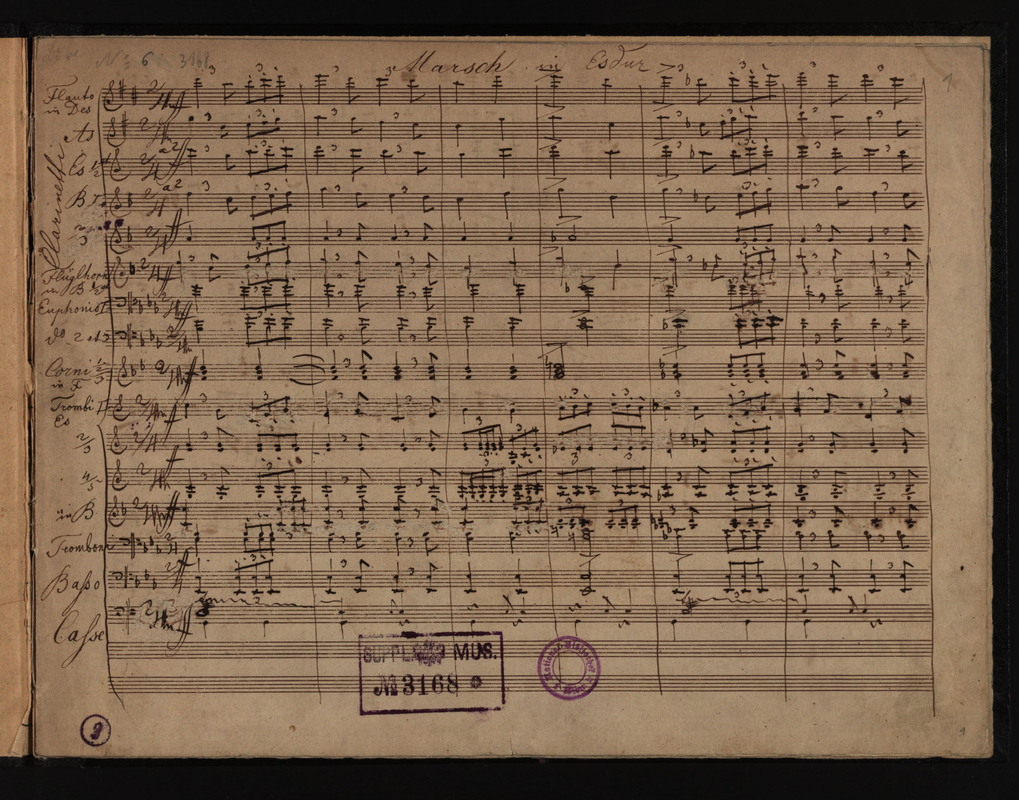 No 6. 3168
Marsch in Esdur
1
Flauto
in Des
As
Es 1/2
Clarinetti
B I
2/3
Flüglhorn
in B
Euphonist
do 2
Corni
in F
Trombi I
Es
2/3
4/5
in B
Trombon
Basso
Casse
SUPPL. MUS.
No 3168
9
1